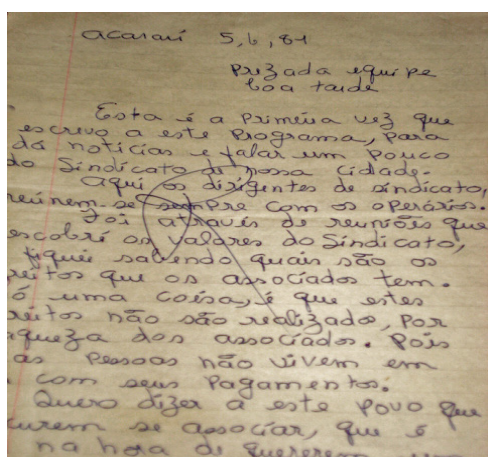 acaraú 5,6,81
prezada equipe
boa tarde
Esta é a primeira vez que
escrevo a este Programa, para
dá noticias e falar um pouco
do Sindicato de nossa cidade.
Aqui os dirigentes de sindicato,
reúnem-se sempre com os operários.
Foi através de reuniões que
escobri os valores do Sindicato,
fiquei sabendo quais são os
reitos que os associados tem.
ó uma coisa, é que estes
reitos não são realizado, por
aqueza dos associados. Pois
as pessoas não vivem em
com seus Pagamentos.
Quero dizer a este povo que
curem se associar, que é
na hora de quererem